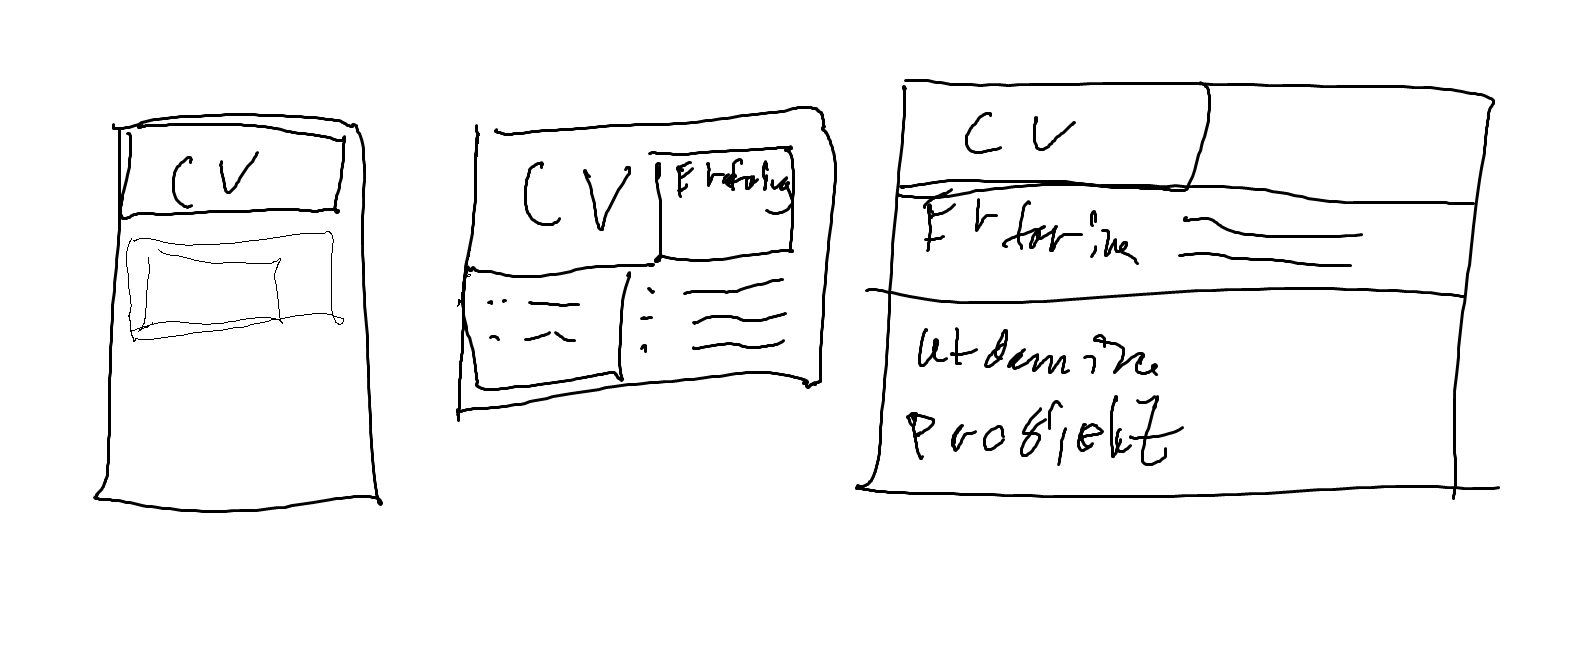 CV
CV
Erfaring
CV
Erfaring
utdanning
Prosjekt